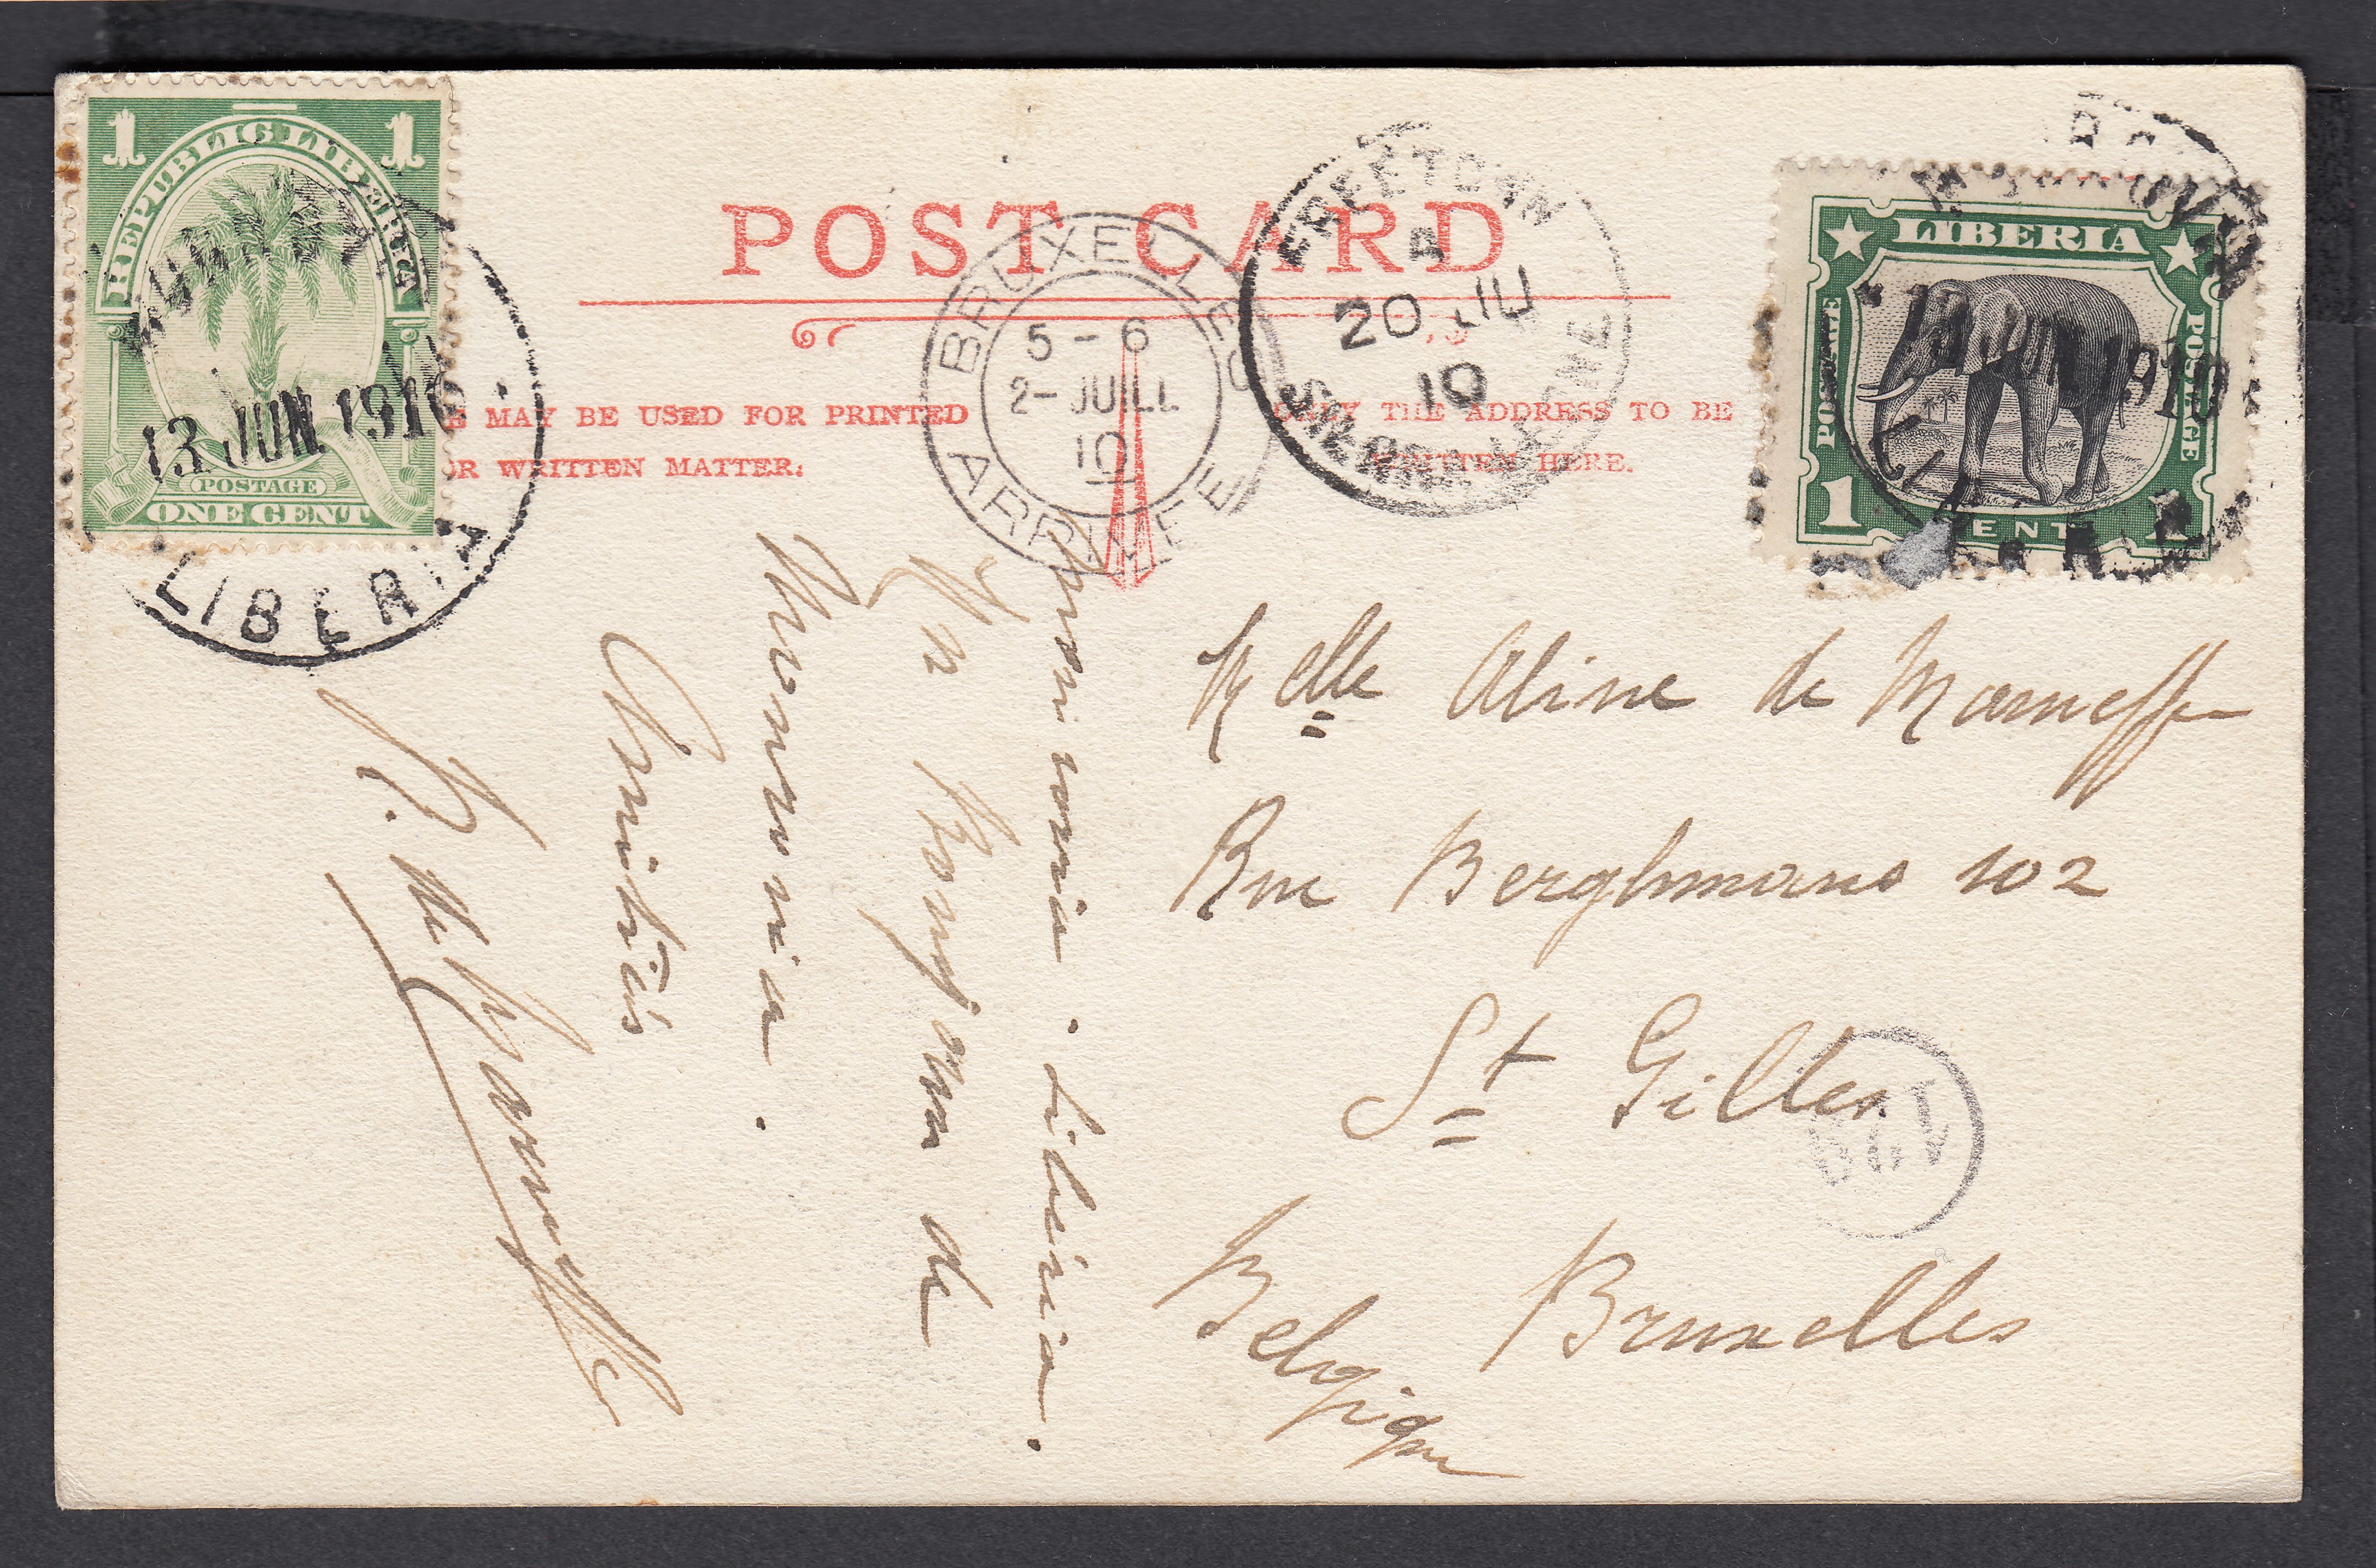 1 1
REPUBLIC LIBERIA
POSTAGE
ONE CENT
MONROVIA
13 JUN 1910
LIBERIA
POST CARD
MAY BE USED FOR PRINTED
OR WRITTEN MATTER.
ONLY THE ADDRESS TO BE
WRITTEN HERE.
BRUXELLES
5-6
2-JUILL
10
ARRIVEE
FREETOWN
A
20 JU
10
SIERRA LEONE
LIBERIA
POSTAGE
POSTAGE
1 CENT 1
MONROVIA
13 JUN 1910
LIBERIA
Melle Aline de Marneffe
Rue Berghmans 102
St Gilles
Bruxelles
Belgique
Monrovia. Liberia.
Un bonjour de
Monrovia.
Amitiés